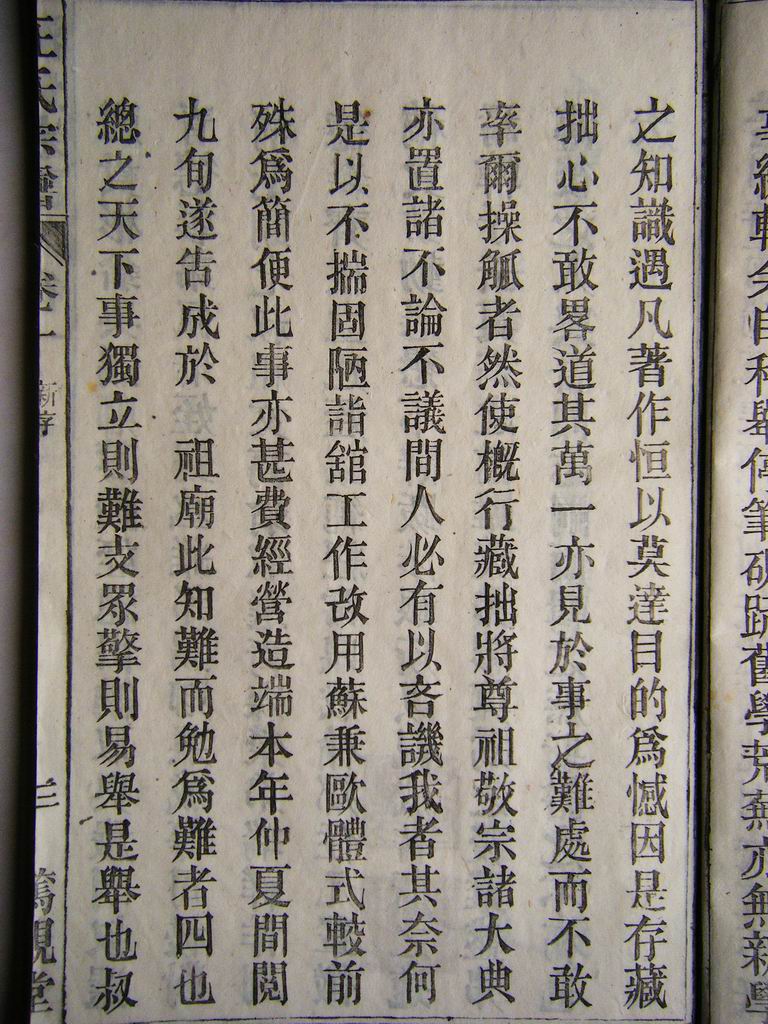 之知識遇凡著作恒以莫達目的爲憾因是存藏
拙心不敢畧道其萬一亦見於事之難處而不敢
率爾操觚者然使概行藏拙將尊祖敬宗諸大典
亦置諸不論不議間人必有以吝譏我者其奈何
是以不揣固陋詣舘工作改用蘇兼歐體式較前
殊爲簡便此事亦甚費經營造端本年仲夏間閲
九旬遂告成於 祖廟此知難而勉爲難者四也
總之天下事獨立則難支眾擎則易舉是舉也叔
王氏宗譜 卷一 新序 二 篤親堂